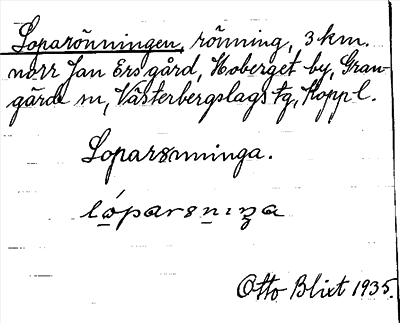 Loparönningen, rönning, 3 km.
norr Jan Ersgård, Hoberget by, Gran-
gärde sn, Västerbergslags tg, Koppl.
Loparønninga.
lóparsnıŋa
Otto Blixt 1935.